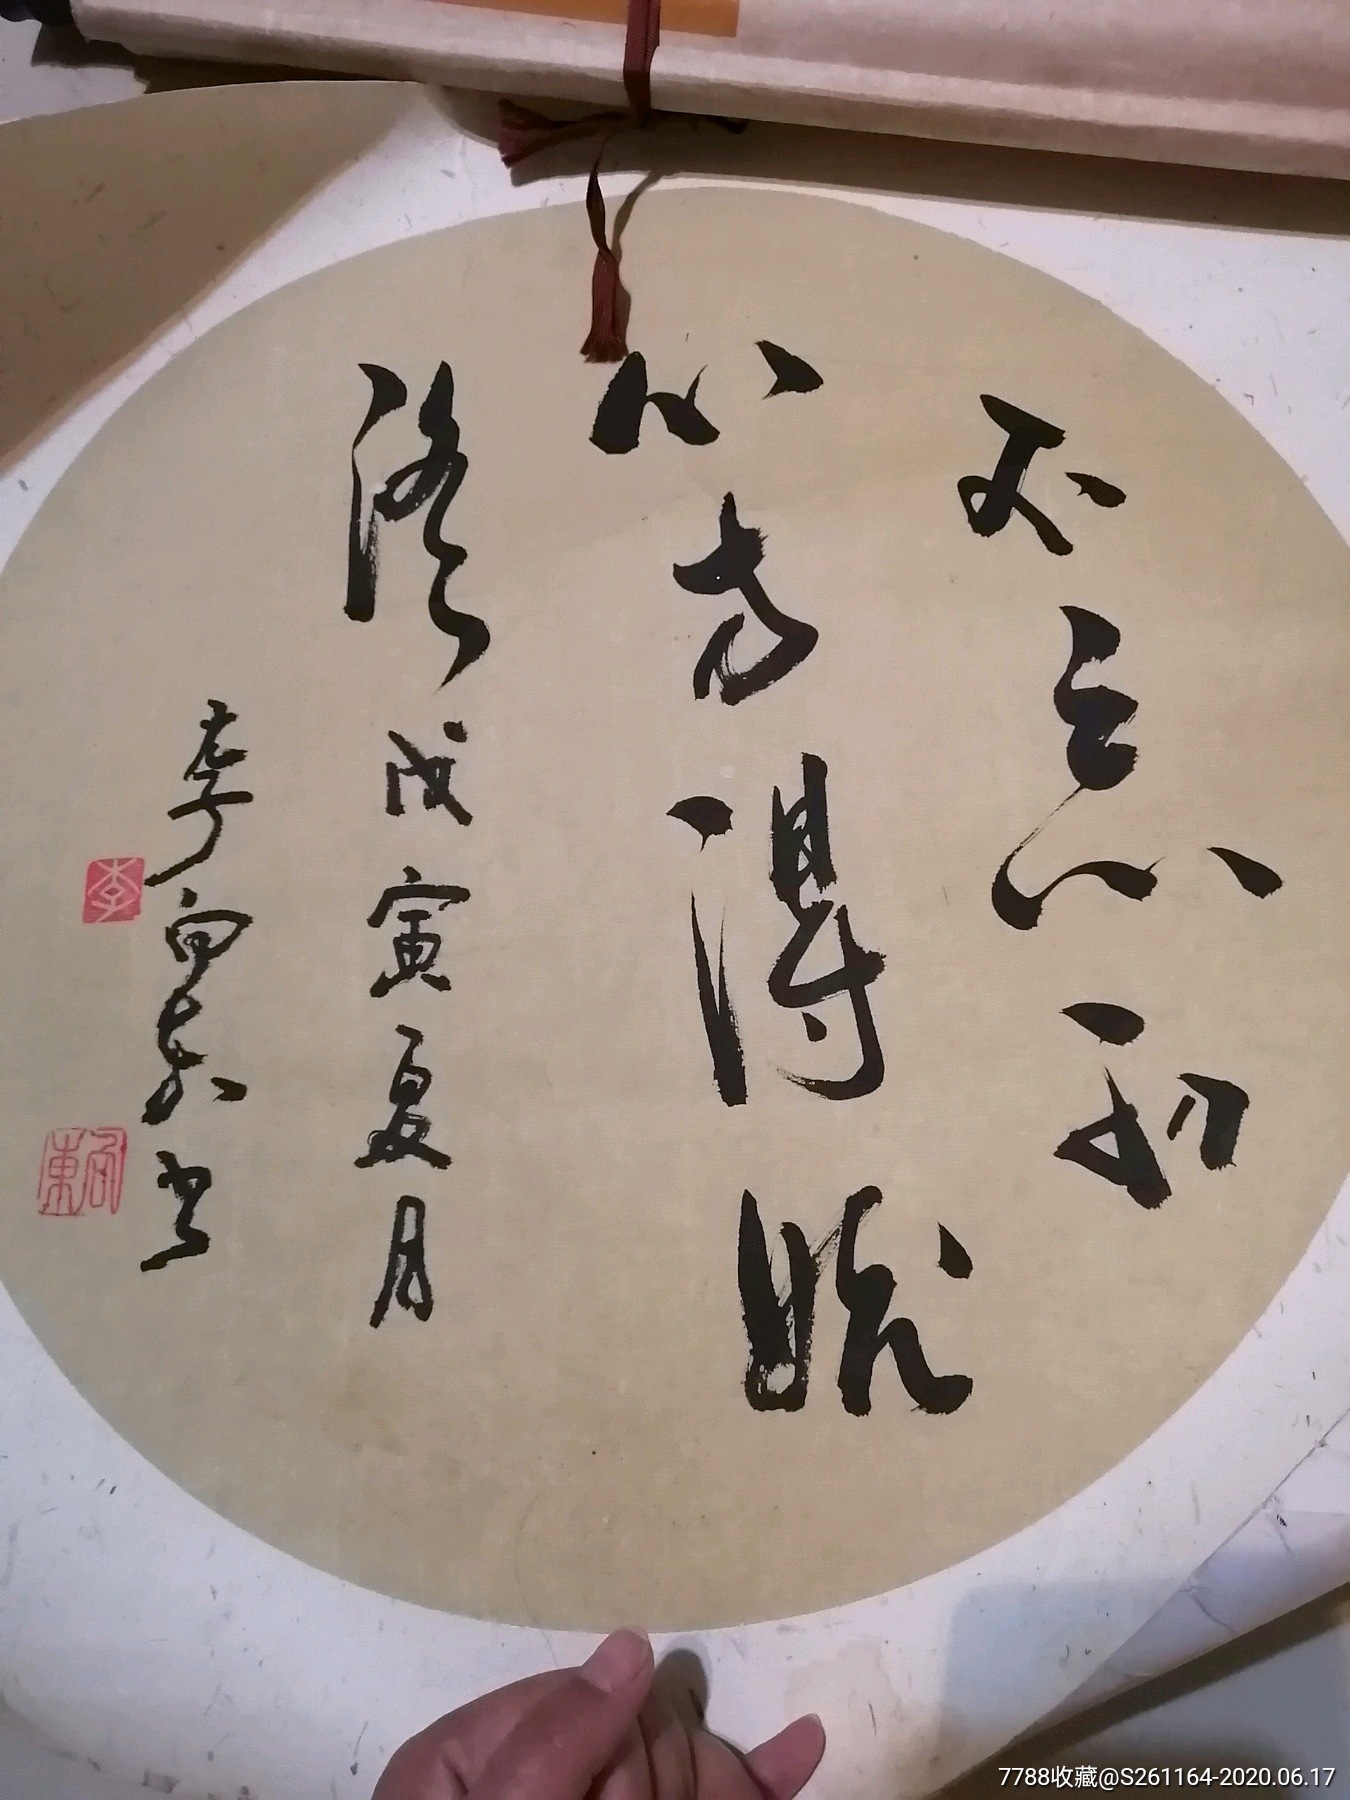 不忘初
心方得始
终 戊寅夏月
李向东书
李
向東
7788收藏@S261164-2020.06.17